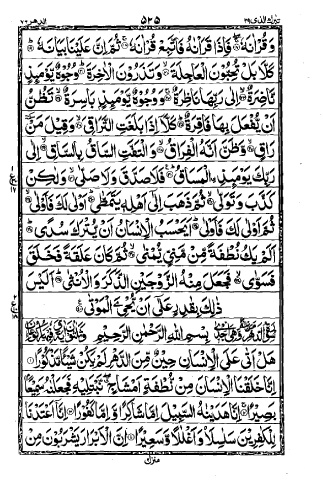 تبرك الذى ٢٩ ٥٢٥ الدهر ٧٦
وَقُرْاٰنَهٗ فَاِذَا قَرَاْنٰهُ فَاتَّبِعْ قُرْاٰنَهٗ ثُمَّ اِنَّ عَلَيْنَا بَيَانَهٗ
كَلَّا بَلْ تُحِبُّوْنَ الْعَاجِلَةَ وَتَذَرُوْنَ الْاٰخِرَةَ وُجُوْهٌ يَّوْمَىِٕذٍ
نَّاضِرَةٌ اِلٰى رَبِّهَا نَاظِرَةٌ وَوُجُوْهٌ يَّوْمَىِٕذٍۭ بَاسِرَةٌ تَظُنُّ
اَنْ يُّفْعَلَ بِهَا فَاقِرَةٌ كَلَّا اِذَا بَلَغَتِ التَّرَاقِىَ وَقِيْلَ مَنْ
رَاقٍ وَّظَنَّ اَنَّهُ الْفِرَاقُ وَالْتَفَّتِ السَّاقُ بِالسَّاقِ اِلٰى
رَبِّكَ يَوْمَىِٕذِ الْمَسَاقُ فَلَا صَدَّقَ وَلَا صَلّٰى وَلٰكِنْ
كَذَّبَ وَتَوَلّٰى ثُمَّ ذَهَبَ اِلٰى اَهْلِهٖ يَتَمَطّٰى اَوْلٰى لَكَ فَاَوْلٰى
ثُمَّ اَوْلٰى لَكَ فَاَوْلٰى اَيَحْسَبُ الْاِنْسَانُ اَنْ يُّتْرَكَ سُدًى
اَلَمْ يَكُ نُطْفَةً مِّنْ مَّنِىٍّ يُّمْنٰى ثُمَّ كَانَ عَلَقَةً فَخَلَقَ
فَسَوّٰى فَجَعَلَ مِنْهُ الزَّوْجَيْنِ الذَّكَرَ وَالْاُنْثٰى اَلَيْسَ
ذٰلِكَ بِقٰدِرٍ عَلٰٓى اَنْ يُّحْىِۦَ الْمَوْتٰى
بِسْمِ اللّٰهِ الرَّحْمٰنِ الرَّحِيْمِ
هَلْ اَتٰى عَلَى الْاِنْسَانِ حِيْنٌ مِّنَ الدَّهْرِ لَمْ يَكُنْ شَيْـًٔا مَّذْكُوْرًا
اِنَّا خَلَقْنَا الْاِنْسَانَ مِنْ نُّطْفَةٍ اَمْشَاجٍ نَّبْتَلِيْهِ فَجَعَلْنٰهُ سَمِيْعًۢا
بَصِيْرًا اِنَّا هَدَيْنٰهُ السَّبِيْلَ اِمَّا شَاكِرًا وَّاِمَّا كَفُوْرًا اِنَّآ اَعْتَدْنَا
لِلْكٰفِرِيْنَ سَلٰسِلَا۟ وَاَغْلٰلًا وَّسَعِيْرًا اِنَّ الْاَبْرَارَ يَشْرَبُوْنَ مِنْ
منزل